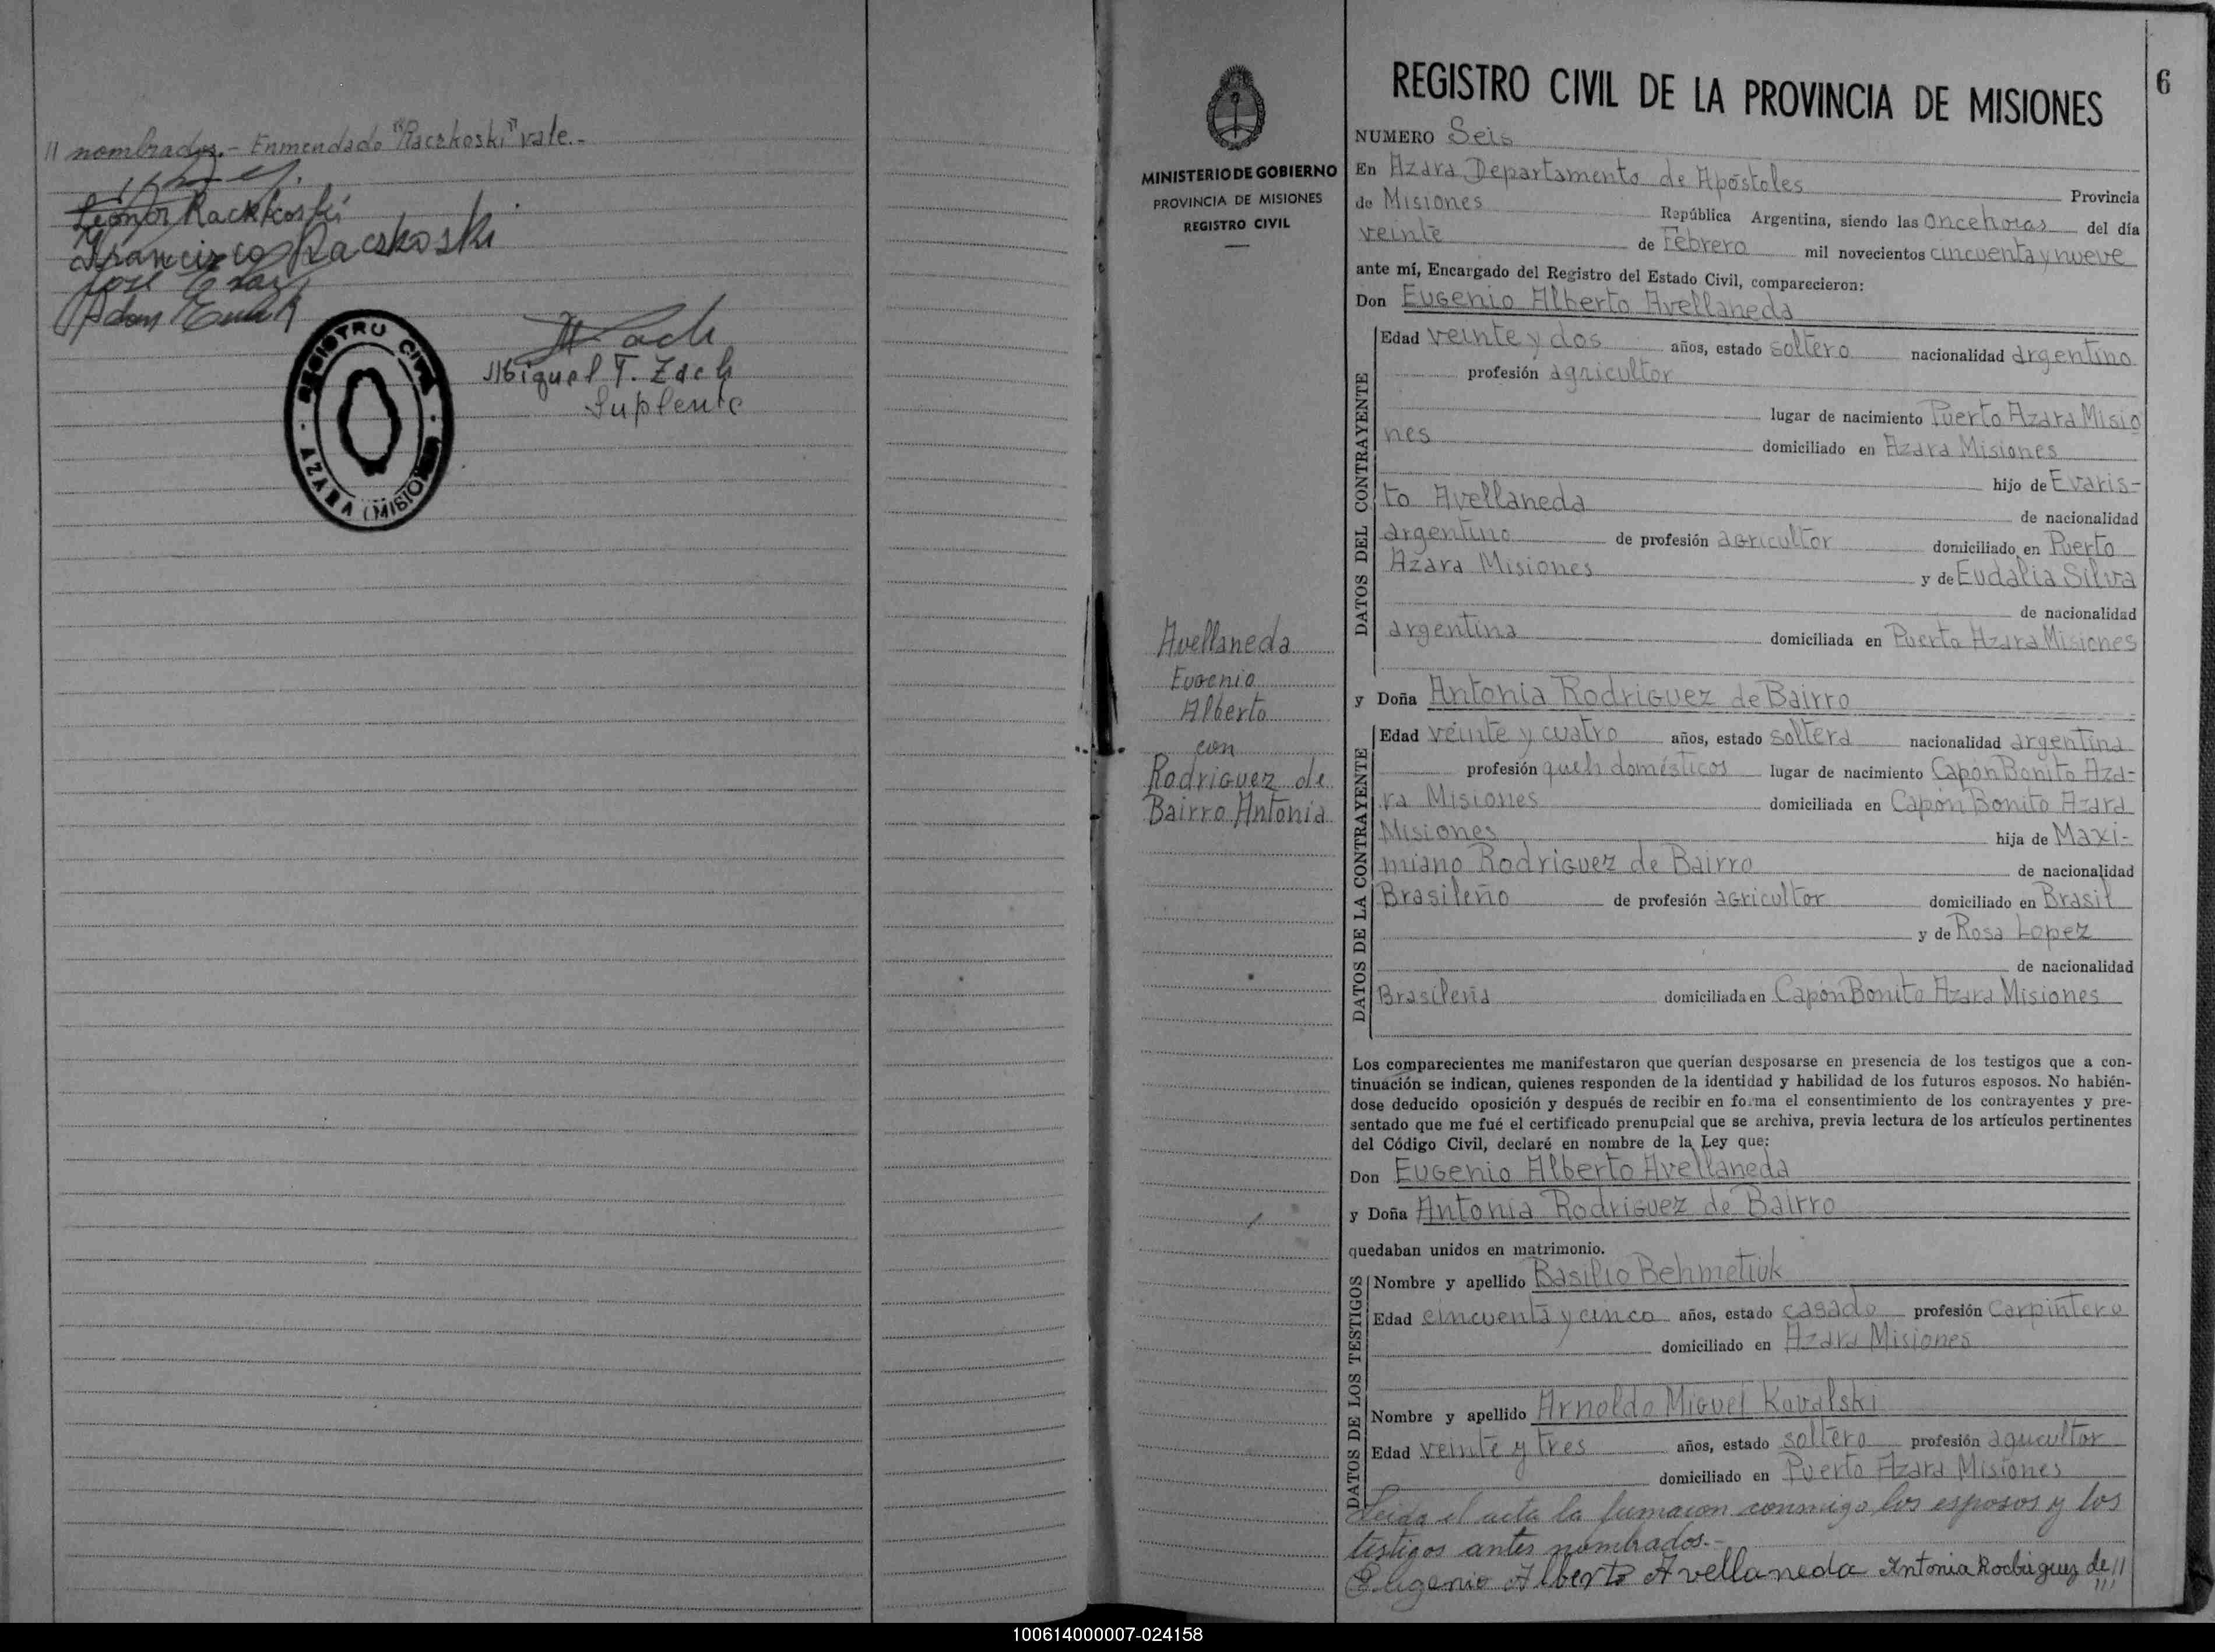 nombrados.- Enmendado "Raczkoski" vale.-
Leonor Rackkoski
Francisco Raczkoski
José
Adan
Zach
Miguel T. Zach
Suplente
REGISTRO CIVIL
AZARA (MISIONES
MINISTERIO DE GOBIERNO
PROVINCIA DE MISIONES
REGISTRO CIVIL
Avellaneda
Eugenio
Alberto
con
Rodriguez de
Bairro Antonia
6
REGISTRO CIVIL DE LA PROVINCIA DE MISIONES
NUMERO Seis
En Azara Departamento de Apóstoles Provincia
de Misiones República Argentina, siendo las once horas del día
veinte de Febrero mil novecientos cincuenta y nueve
ante mí, Encargado del Registro del Estado Civil, comparecieron:
Don Eugenio Alberto Avellaneda
DATOS DEL CONTRAYENTE
Edad veinte y dos años, estado soltero nacionalidad argentino
profesión agricultor
lugar de nacimiento Puerto Azara Misio
nes domiciliado en Azara Misiones
hijo de Evaris-
to Avellaneda de nacionalidad
argentino de profesión agricultor domiciliado en Puerto
Azara Misiones y de Eudalia Silva
de nacionalidad
argentina domiciliada en Puerto Azara Misiones
y Doña Antonia Rodriguez de Bairro
DATOS DE LA CONTRAYENTE
Edad veinte y cuatro años, estado soltera nacionalidad argentina
profesión queh domésticos lugar de nacimiento Capón Bonito Aza-
ra Misiones domiciliada en Capón Bonito Azara
Misiones hija de Maxi-
miano Rodriguez de Bairro de nacionalidad
Brasileño de profesión agricultor domiciliado en Brasil
y de Rosa Lopez
de nacionalidad
Brasileña domiciliada en Capón Bonito Azara Misiones
Los comparecientes me manifestaron que querían desposarse en presencia de los testigos que a con-
tinuación se indican, quienes responden de la identidad y habilidad de los futuros esposos. No habién-
dose deducido oposición y después de recibir en forma el consentimiento de los contrayentes y pre-
sentado que me fué el certificado prenupcial que se archiva, previa lectura de los artículos pertinentes
del Código Civil, declaré en nombre de la Ley que:
Don Eugenio Alberto Avellaneda
y Doña Antonia Rodriguez de Bairro
quedaban unidos en matrimonio.
DATOS DE LOS TESTIGOS
Nombre y apellido Basilio Behmetiuk
Edad cincuenta y cinco años, estado casado profesión Carpintero
domiciliado en Azara Misiones
Nombre y apellido Arnoldo Miguel Kovalski
Edad veinte y tres años, estado soltero profesión agricultor
domiciliado en Puerto Azara Misiones
Leida el acta la firmaron conmigo los esposos y los
testigos antes nombrados.-
Eugenio Alberto Avellaneda Antonia Rodriguez de
100614000007-024158